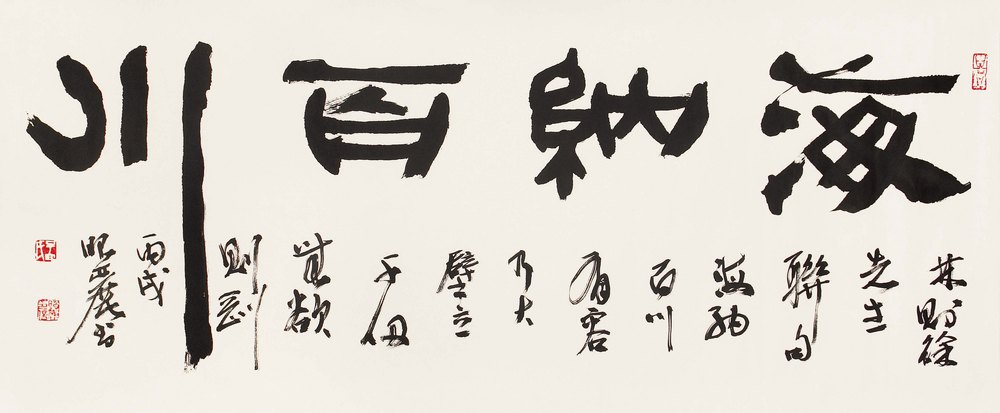 海納百川
林則徐
先生
聯句
海納
百川
有容
乃大
壁立
千仞
無欲
則剛
丙戌
书